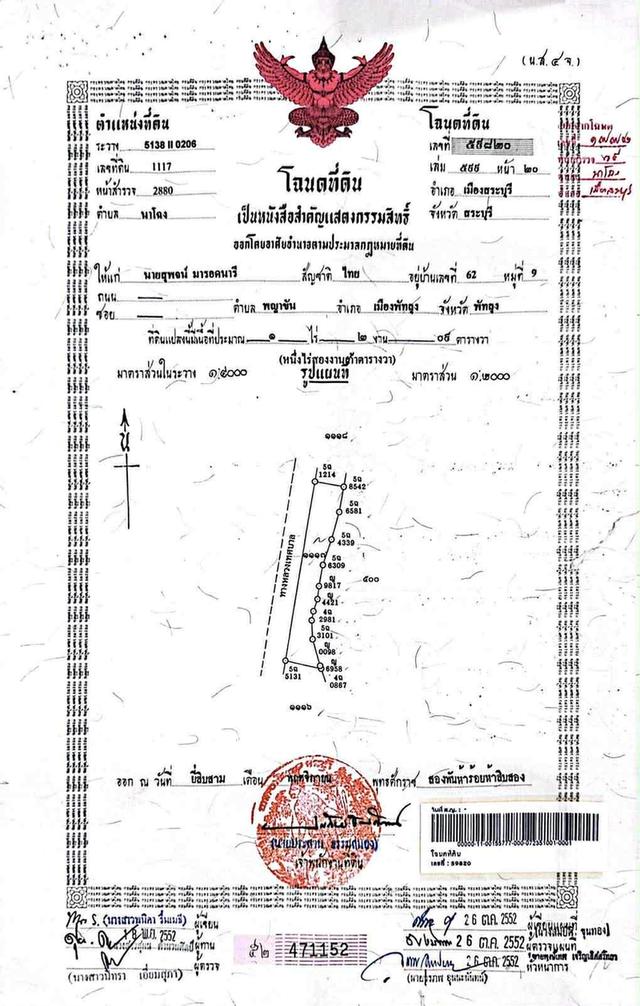 (น.ส.๔ จ.)
ตำแหน่งที่ดิน
ระวาง 5138 II 0206
เลขที่ดิน 1117
หน้าสำรวจ 2880
ตำบล นาโฉง
โฉนดที่ดิน
เลขที่ ๕๙๘๒๐
เล่ม ๕๙๙ หน้า ๒๐
อำเภอ เมืองสระบุรี
จังหวัด สระบุรี
โฉนดที่ดิน
เป็นหนังสือสำคัญแสดงกรรมสิทธิ์
ออกโดยอาศัยอำนาจตามประมวลกฎหมายที่ดิน
ให้แก่ นายสุพจน์ สัญชาติ ไทย อยู่บ้านเลขที่ 62 หมู่ที่ 9
ถนน
ซอย ตำบล พญาขัน อำเภอ เมืองพัทลุง จังหวัด พัทลุง
ที่ดินแปลงนี้มีเนื้อที่ประมาณ ๑ ไร่ ๒ งาน ๐๙ ตารางวา
(หนึ่งไร่สองงานเก้าตารางวา)
มาตราส่วนในระวาง ๑:๔๐๐๐ รูปแผนที่ มาตราส่วน ๑:๒๐๐๐
น
๑๑๑๘
5ฉ
1214
5ฉ
8542
5ฉ
6581
5ฉ
4339
๑๑๑๗
5ฉ
6309
ญ
9817
๕๐๐
ญ
4421
4ฉ
2981
5ฉ
3101
ญ
0098
ญ
6958
5ฉ
5131
4ฉ
0867
ทางหลวงเทศบาล
๑๑๑๖
ออก ณ วันที่ ยี่สิบสาม เดือน พฤศจิกายน พุทธศักราช สองพันห้าร้อยห้าสิบสอง
เจ้าพนักงานที่ดิน
00000-11-00155777-000-0723S1001-0001
โฉนดที่ดิน
เลขที่ : 59820
ผู้เขียน
18 พ.ค. 2552 ผู้ทาน
ผู้ตรวจ
๕๒ 471152
26 ต.ค. 2552
26 ต.ค. 2552 ผู้ตรวจแผนที่
26 ต.ค. 2552 หัวหน้าการ